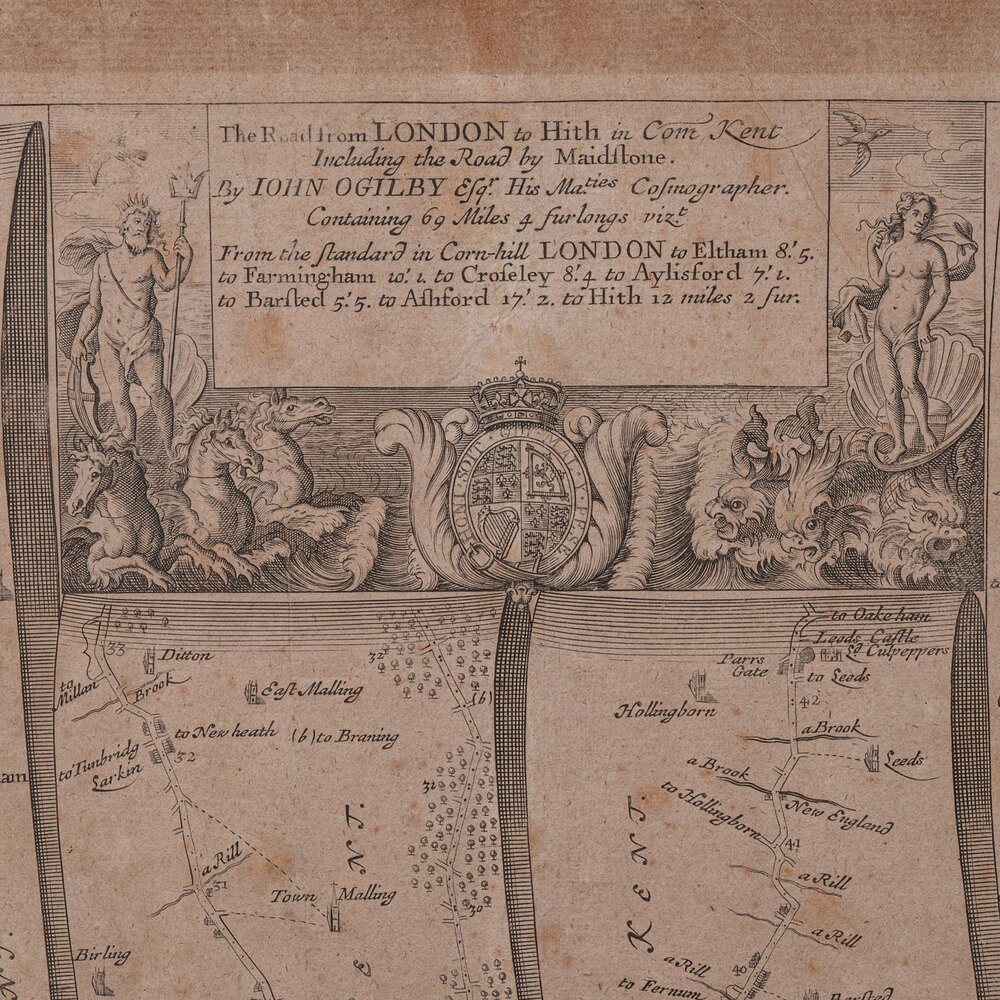 The Road from LONDON to Hith in Com Kent
Including the Road by Maidstone.
By IOHN OGILBY Esqr. His Maties Cosmographer.
Containing 69 Miles 4 furlongs vizt
From the standard in Corn-hill LONDON to Eltham 8' 5.
to Farmingham 10' 1. to Croseley 8' 4 to Aylisford 7' 1.
to Barsted 5' 5. to Ashford 17' 2. to Hith 12 miles 2 fur.
33
Ditton
to Millan
Brook
East Malling
to Newheath
(b) to Braning
to Tunbridg
Larkin
32
a Rill
31
Town Malling
Birling
NT.
e
32
(b)
31
30
to Oakeham
Leeds Castle
Ld. Culpeppers
Parrs Gate
to Leeds
42
Hollingborn
a Brook
Leeds
a Brook
to Hollingborn
New England
41
KENT.
a Rill
a Rill
a Rill
40
to Fernum
Barsted
am